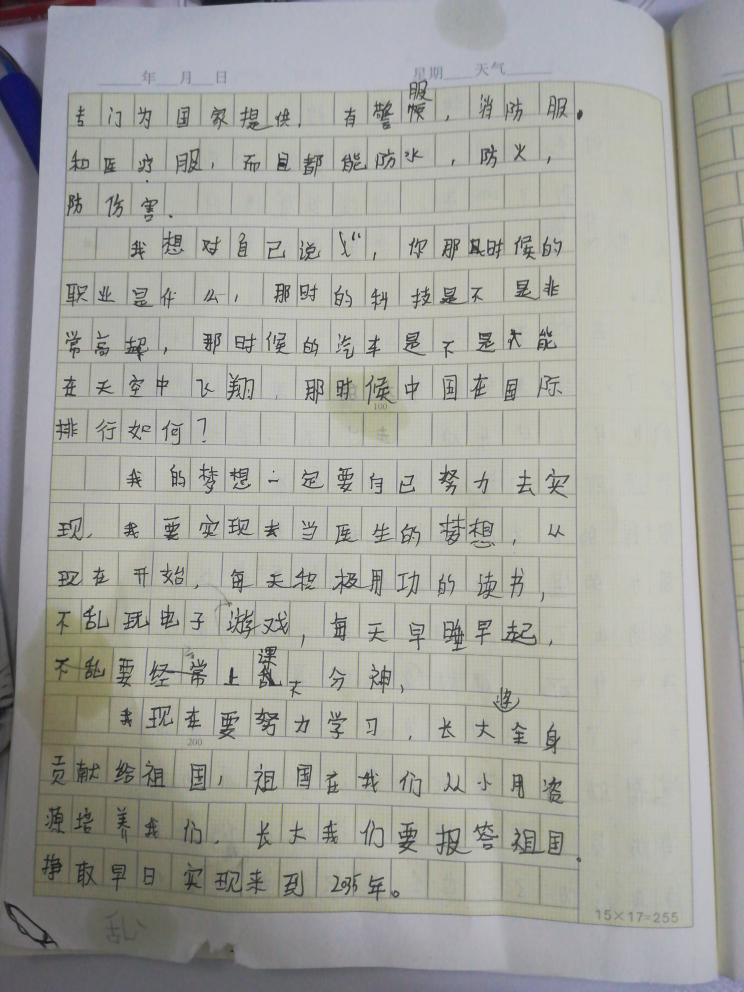 年 月 日 星期 天气
专门为国家提供，有警服，消防服。
和医疗服，而且都能防水，防火，
防伤害．
我想对自己说：“，你那时候的
职业是什么，那时的科技是不是非
常高超，那时候的汽车是不是能
在天空中飞翔，那时候中国在国际
100
排行如何？
我的梦想一定要自己努力去实
现，我要实现去当医生的梦想，从
现在开始，每天积极用功的读书，
不乱玩电子游戏，每天早睡早起，
不要上课分神，
我现在要努力学习，长大将全身
200
贡献给祖国，祖国在我们从小用资
源培养我们，长大我们要报答祖国．
挣取早日实现来到2035年。
乱
15×17=255